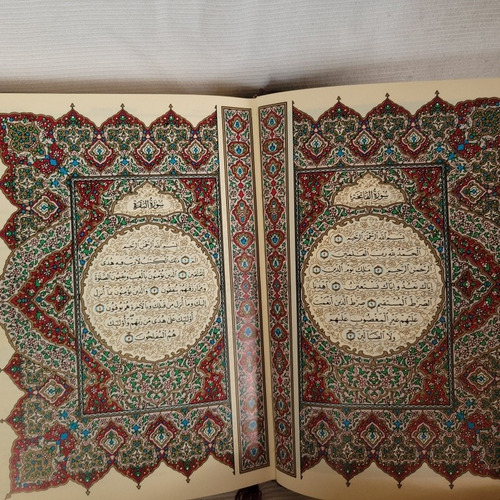 سورة الفاتحة
بسم الله الرحمن الرحيم
الحمد لله رب العلمين
الرحمن الرحيم ملك يوم الدين
إياك نعبد وإياك نستعين اهدنا
الصرط المستقيم صرط الذين أنعمت
عليهم غير المغضوب عليهم
ولا الضالين
سورة البقرة
بسم الله الرحمن الرحيم
الم ذلك الكتب لا ريب فيه هدى
للمتقين الذين يؤمنون بالغيب ويقيمون الصلوة
ومما رزقنهم ينفقون والذين يؤمنون بما أنزل
إليك وما أنزل من قبلك وبالآخرة هم يوقنون
أولئك على هدى من ربهم وأولئك
هم المفلحون